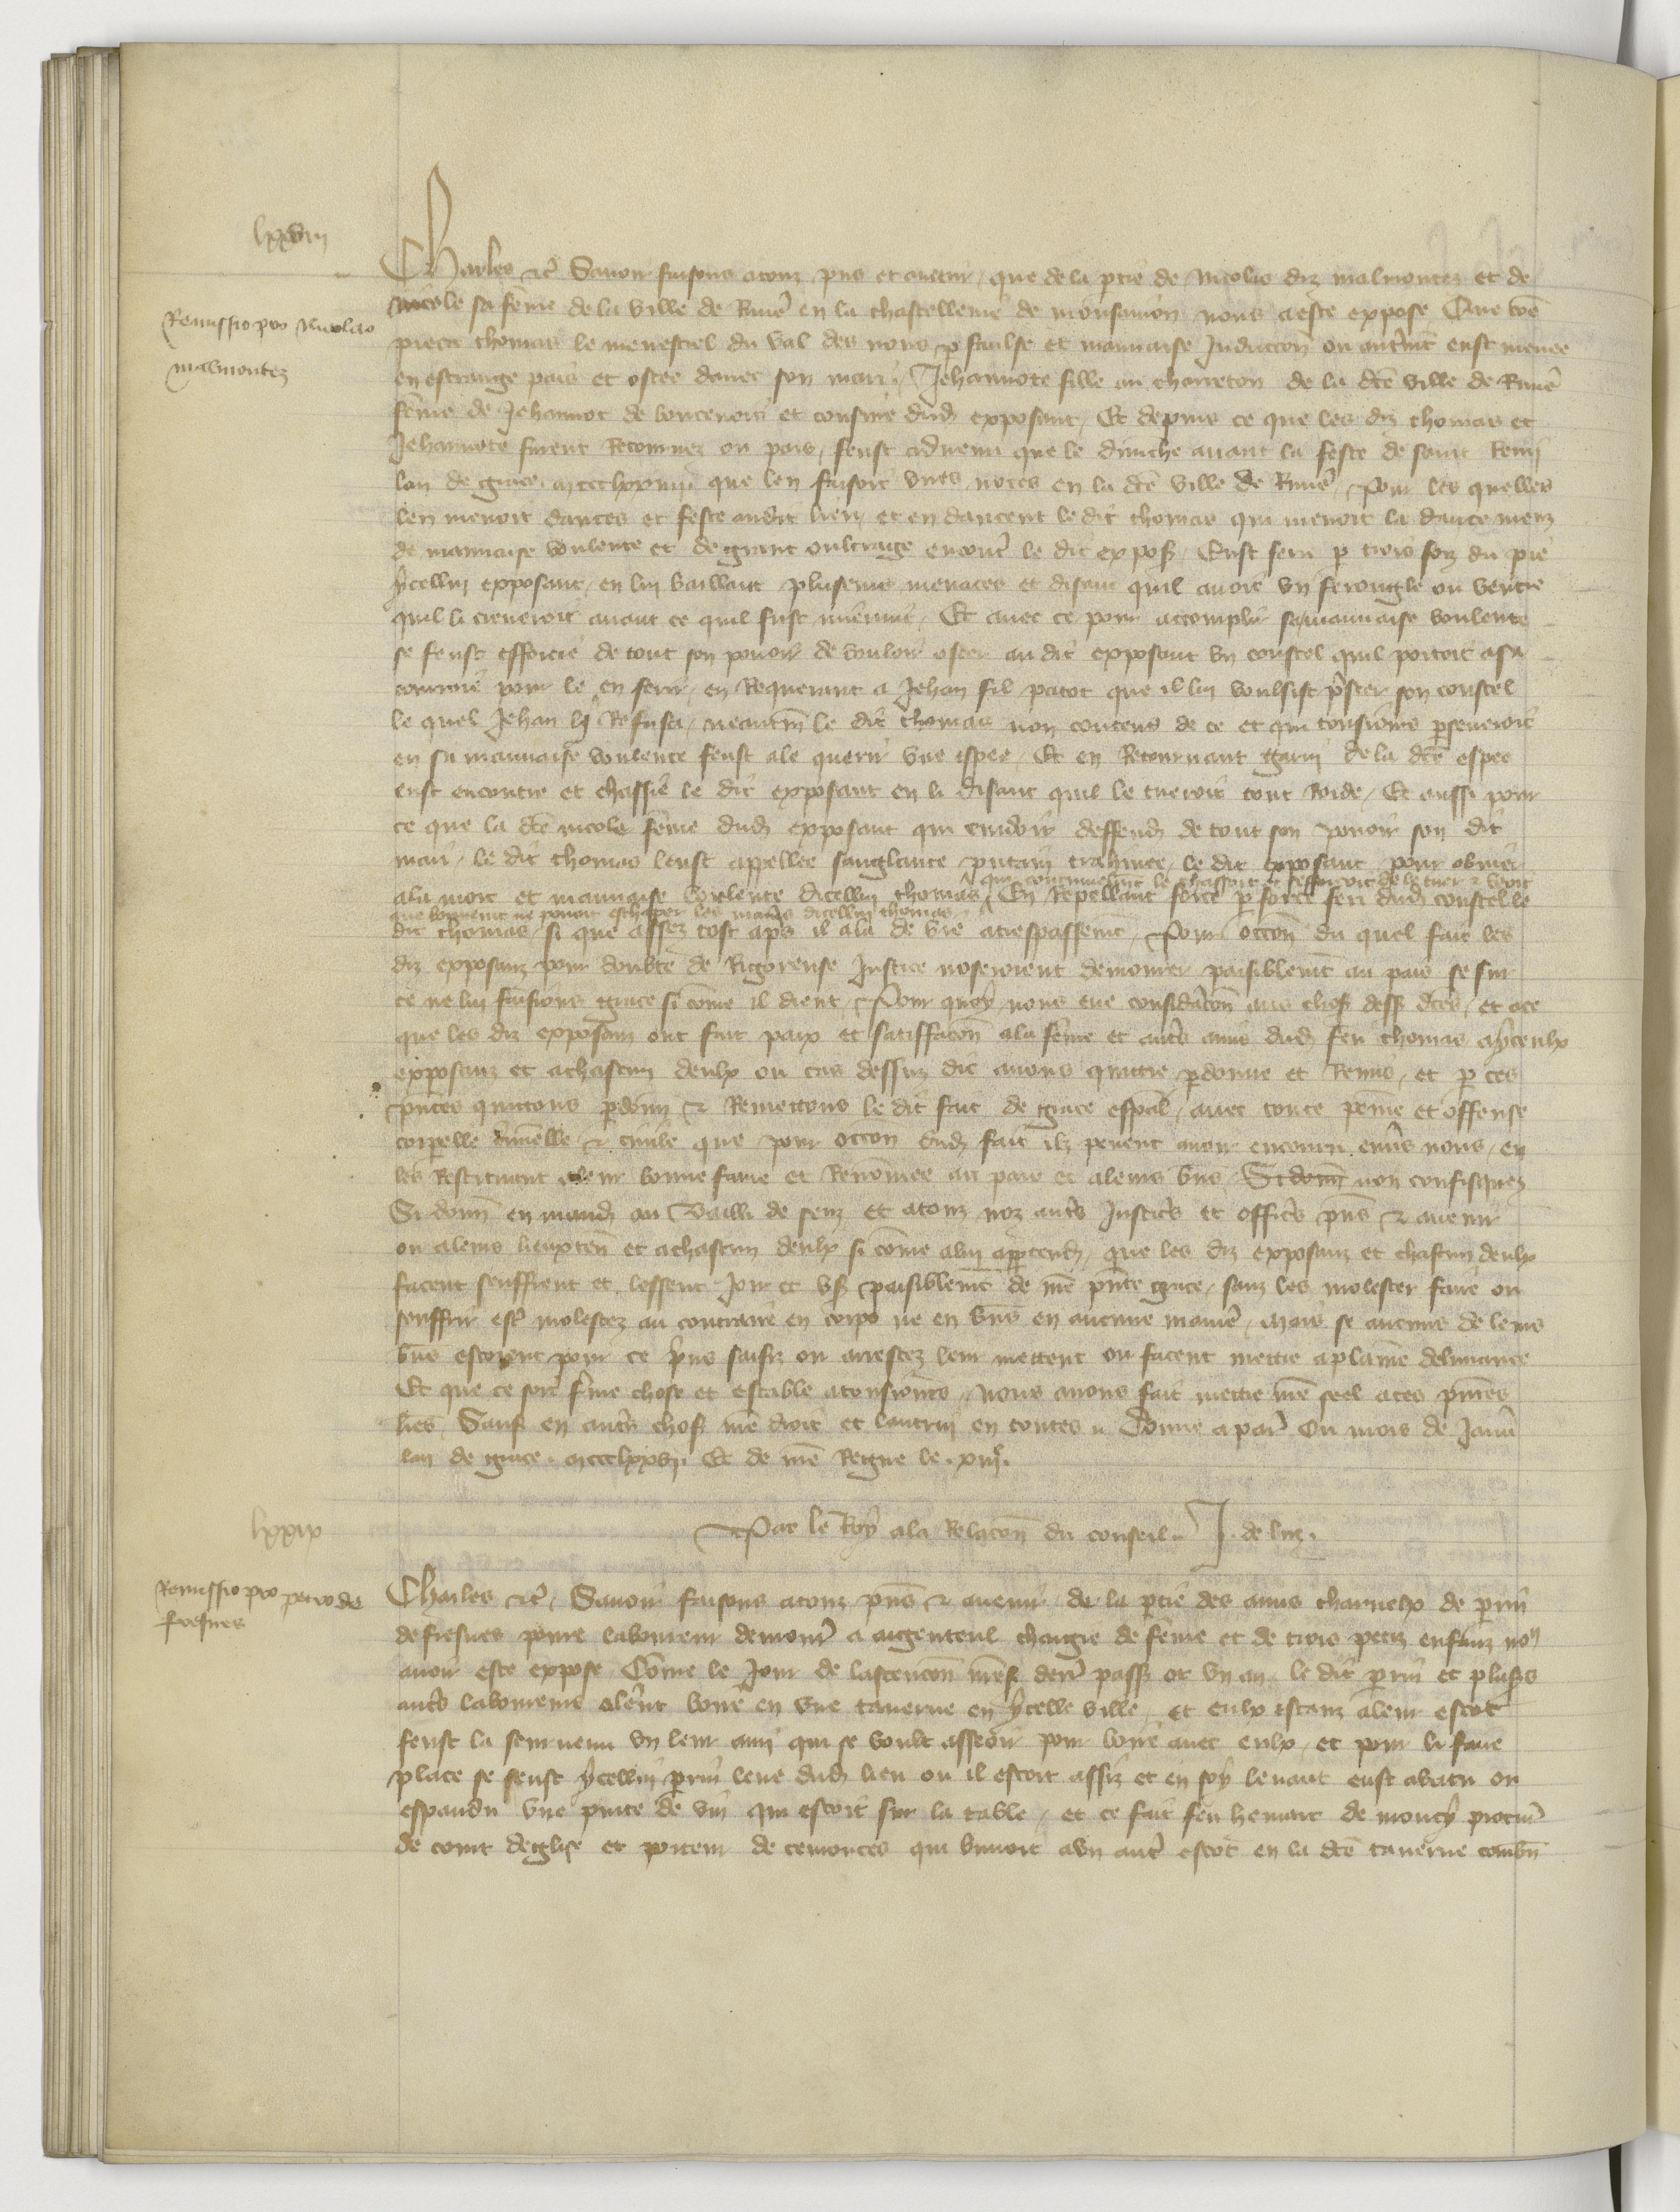 lxxviii
Charles etc. Savoir faisons a touz pns et avenir que de la ptie de Nicolas diz malmontez et de
Remissio pro Nicolao
malmontez
Nicole sa feme de la ville de en la chastellenie de nous a este expose Que come
pieca thomas le menestrel du val des nons p faulse et mauvaise Induccon ou autremt eust menee
en estrange pais et ostee davec son mari Jehannote fille au charreton de la dce ville de
feme de Jehannot de et cousine dud exposant Et depuis ce que les diz thomas et
Jehannote furent Retournez ou pais feust advenu que le dimenche avant la feste de saint Remi
lan de grace que len faisoit unes noces en la dce ville de pour les quelles
len menoit dances et feste audit lieu et en dancent le dit thomas qui menoit la dance meuz
de mauvaise voulente et de grant oultrage encontre le dit expos Eust feru p trois foiz du pie
ycellui exposant en lui baillant pluseurs menaces et disant quil avoit un ou ventre
quil li creveroit avant ce quil fust Et avec ce pour accomplir sa mauvaise voulente
se feust efforcie de tout son povoir de vouloir oster au dit exposant un coustel quil portoit a sa
couroie pour le en ferir en Requerant a Jehan fil patot que il lui voulsist pster son coustel
le quel Jehan li Refusa neantm le dit thomas non contens de ce et qui tousiours pseveroit
en sa mauvaise voulente feust ale querir une espee Et en Retournant garni de la dce espee
eust encontre et chassie le dit exposant en li disant quil le tueroit tout Roide Et aussi pour
ce que la dce nicole feme dud exposant qui cuidoit deffend de tout son povoir son dit
mari le dit thomas leust appellee sanglante putain le dit exposant pour obvier
qui continuelmt le chassoit et sefforcoit de le tuer et veoit
a la mort et mauvaise voulente dicellui thomas En Repellant force p force feri dud coustel le
que bonnemt ne povoit eschaper les mains dicellui thomas
dit thomas si que assez tost aps il ala de vie a trespassemt Pour occon du quel fait les
diz exposanz pour doubte de Rigoreuse Justice noseroient demourer paisiblemt au pais se sur
ce ne lui faisions grace si come il dient Pour quoy nous eue consideracon aus chos dess dces et a ce
que les diz exposanz ont fait paix et satiffacon a la feme et autres amis dud feu thomas a yceulx
exposanz et a chascun deulx ou cas dessuz dit avons quittie pdonne et Remis et p ces
pntes quittons pdonns et Remettons le dit fait de grace espal avec toute peine et offense
corpelle criminelle et civile que pour occon dud fait ilz pevent avoir encouru envs nous en
les Restituant a leur bonne fame et Renomee au pais et a leurs bns Si donn non confisquez
Si donn en mand au Bailli de senz et a touz noz autres Justicrs et officrs pns et avenir
ou a leurs lieuxten et a chascun deulx si come a lui apptend que les diz exposanz et chascun deulx
facent seuffrent et lessent Joir et us paisiblemt de nre pnte grace sanz les molester faire ou
souffrir estre molestez au contraire en corps ne en bns en aucune maniere Mais se aucuns de leurs
bns estoient pour ce pns saisiz ou arrestez leur mettent ou facent mettre a plaine delivrance
Et que ce soit ferme chose et estable a tousiours Nous avons fait mettre nre seel a ces pntes
lres Sauf en autres chos nre droit et lautrui en toutes Donne a par Ou mois de Janvier
lan de grace mccclxxvii Et de nre Regne le xiiije
Par le Roy a la Relacon du conseil J. de luz
lxxix
Remissio pro petro de
fresnes
Charles etc. Savoir faisons a touz pns et avenir de la ptie des amis charnelx de prin
de fresnes povre laboureur demourant a argenteul chargie de feme et de trois petiz enfanz nous
avoir este expose Come le Jour de lascencon derr pass ot un an le dit prin et plus
autres laboureurs alernt boire en une taverne en ycelle ville et eulx estanz a leur escot
feust la seurvenu un leur ami qui se voult asseoir pour boire avec eulx et pour li faire
place se feust ycellui prin leve dud lieu ou il estoit assiz et en soy levant eust abatu ou
espandu une pinte de vin qui estoit sur la table et ce fait feu henriet de moucy procureur
de court deglise et porteur de cemonces qui buvoit a un autre escot en la dce taverne